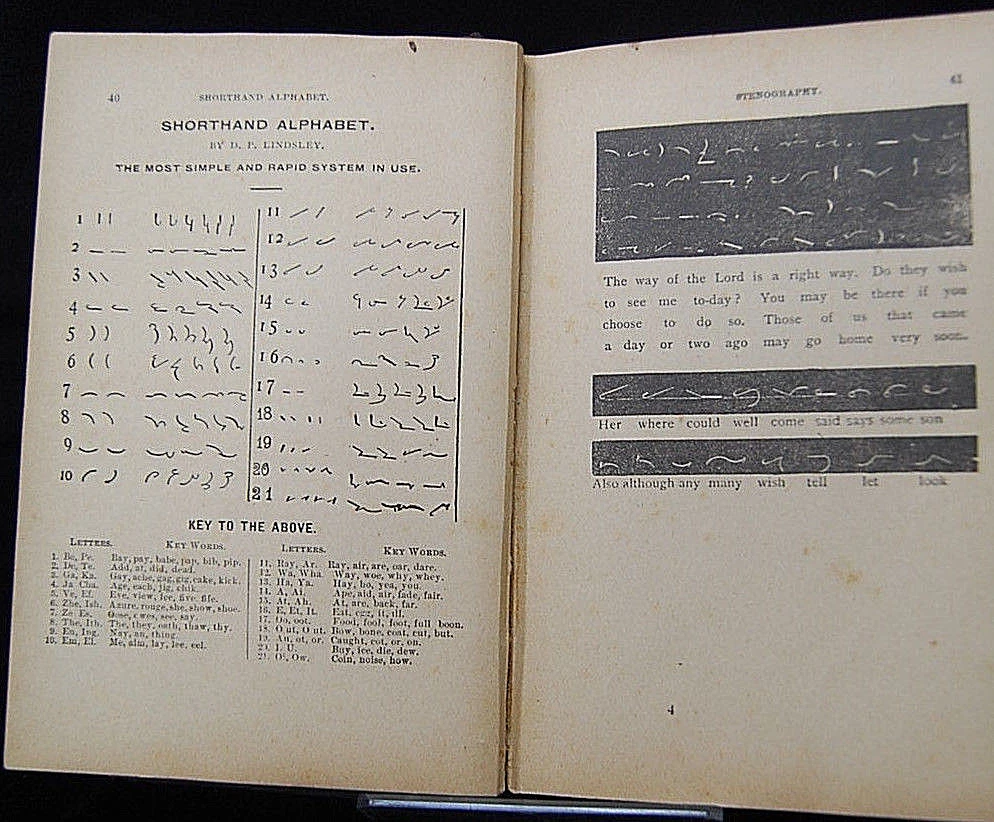 40 SHORTHAND ALPHABET.
SHORTHAND ALPHABET.
BY D. P. LINDSLEY.
THE MOST SIMPLE AND RAPID SYSTEM IN USE.
1
2
3
4
5
6
7
8
9
10
11
12
13
14
15
16
17
18
19
20
21
KEY TO THE ABOVE.
LETTERS. KEY WORDS.
1. Be, Pe. Bay, pay, babe, pap, bib, pip.
2. De, Te. Add, at, did, dead.
3. Ga, Ka. Gay, ache, gag, gig, cake, kick.
4. Ja Cha. Age, each, jig, chik.
5. Ve, Ef. Eve, view, fee, five, fife.
6. Zhe, Ish. Azure, rouge, she, show, shoe.
7. Ze Es. Oose, owes, see, say
8. The, Ith. The, they, oath, thaw, thy.
9. En, Ing. Nay, an, thing.
10. Em, El. Me, aim, lay, lee, eel.
LETTERS. KEY WORDS.
11. Ray, Ar. Ray, air, are, oar, dare.
12. Wa, Wha. Way, woe, why, whey.
13. Ha, Ya. Hay, ho, yea, you.
14. A, Ai. Ape, aid, air, fade, fair.
15. At, Ah. At, are, back, far.
16. E, Et, It. Eat, egg, it, ill.
17. Oo, oot. Food, fool, foot, full boon.
18. O ut, O ut. Bow, bone, coat, cut, but.
19. Au, ot, or. Caught, cot, or, on.
20. I, U. Buy, ice, die, dew.
21. Oi, Ow. Coin, noise, how.
STENOGRAPHY. 41
The way of the Lord is a right way. Do they wish
to see me to-day? You may be there if you
choose to do so. Those of us that came
a day or two ago may go home very soon.
Her where could well come said says some son
Also although any many wish tell let look
4